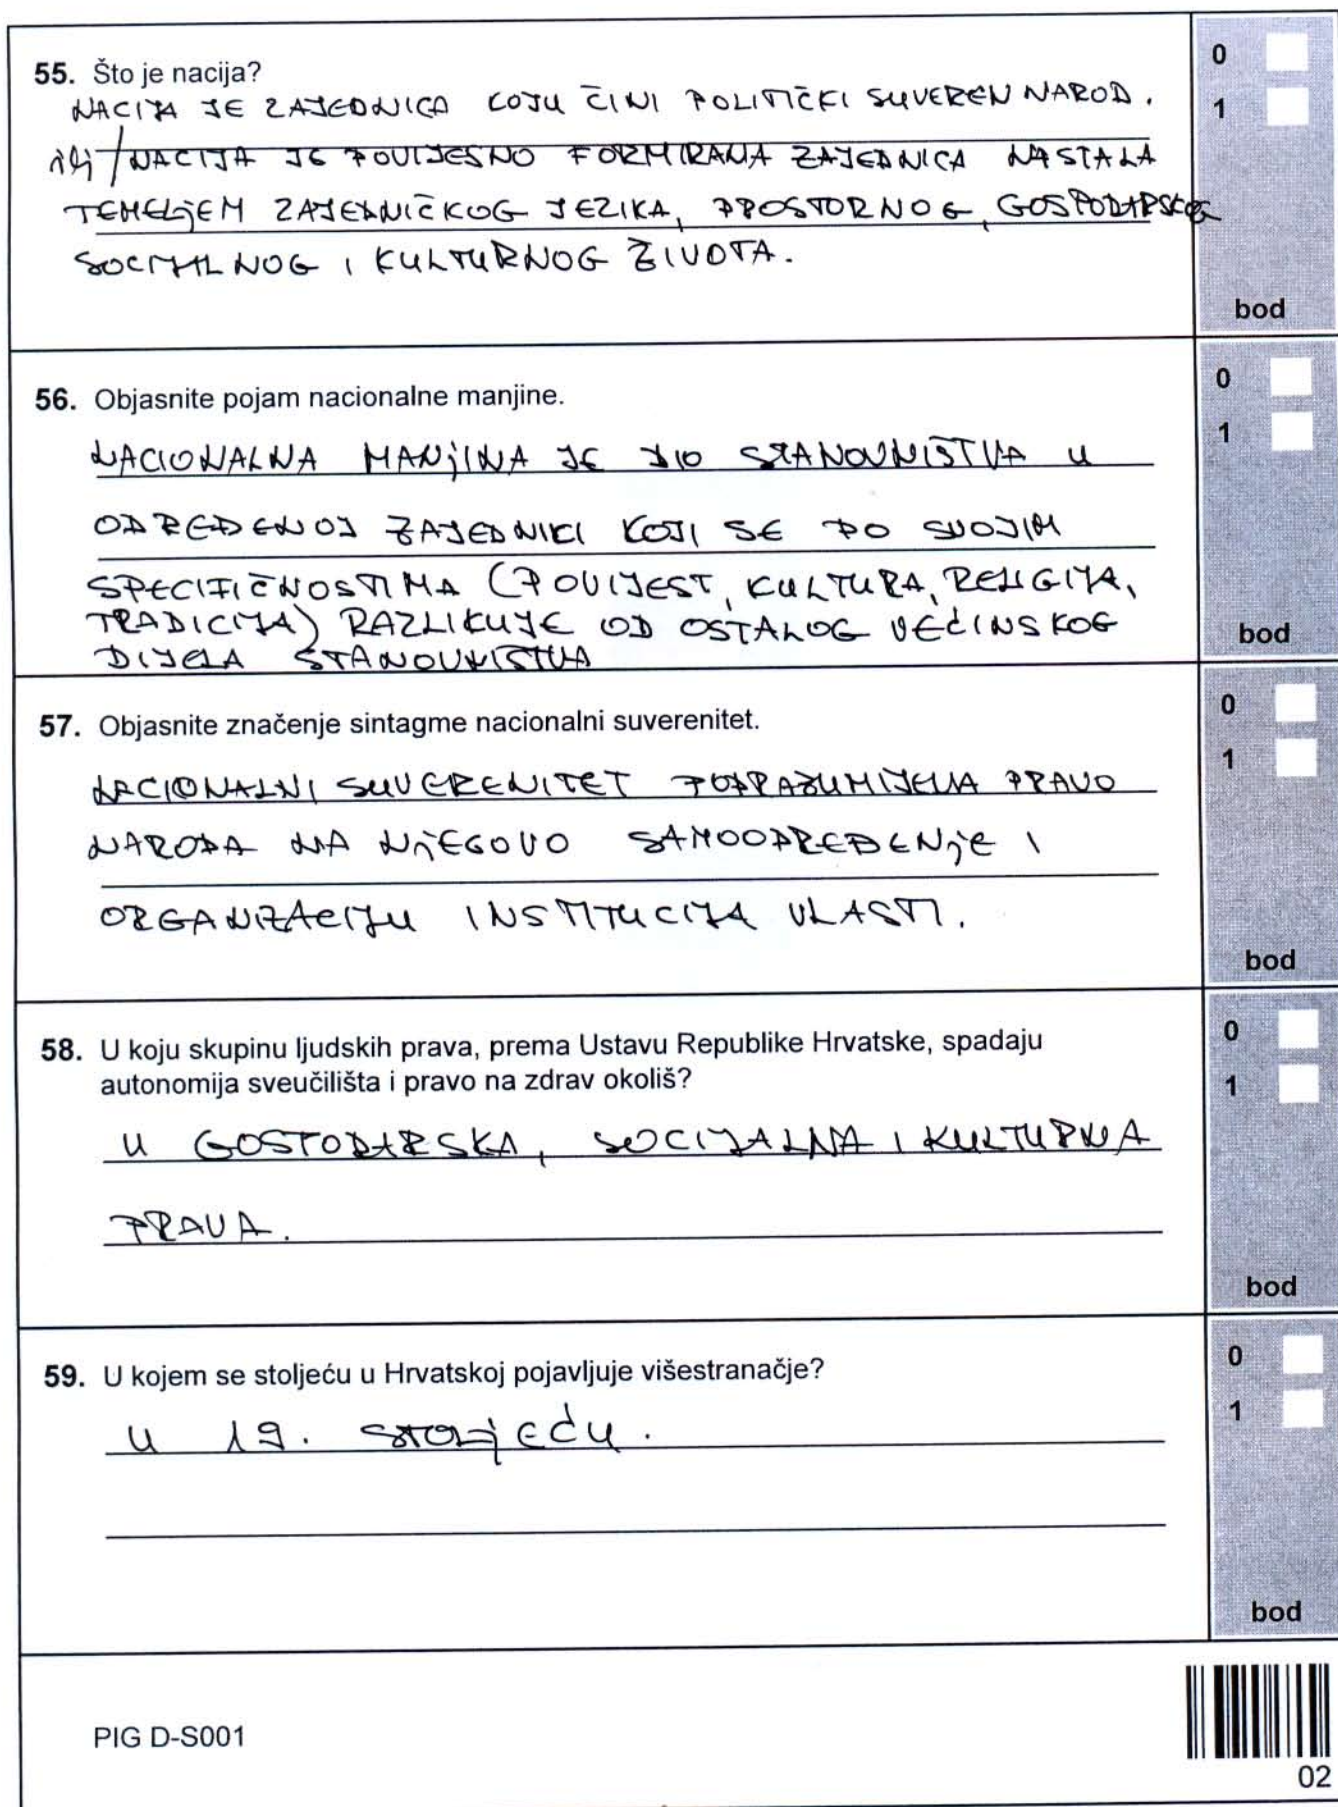 55. Što je nacija?
NACIJA JE ZAJEDNICA KOJU ČINI POLITIČKI SUVEREN NAROD.
ili / NACIJA JE POVIJESNO FORMIRANA ZAJEDNICA NASTALA
TEMELjEM ZAJEDNIČKOG JEZIKA, PROSTORNOG, GOSPODARSKOG
SOCIJALNOG I KULTURNOG ŽIVOTA.
0
1
bod
56. Objasnite pojam nacionalne manjine.
NACIONALNA MANjINA JE DIO STANOVNIŠTVA U
ODREĐENOJ ZAJEDNICI KOJI SE PO SVOJIM
SPECIFIČNOSTIMA (POVIJEST, KULTURA, RELIGIJA,
TRADICIJA) RAZLIKUJE OD OSTALOG VEĆINSKOG
DIJELA STANOVNIŠTVA
0
1
bod
57. Objasnite značenje sintagme nacionalni suverenitet.
NACIONALNI SUVERENITET PODRAZUMIJEVA PRAVO
NARODA NA NjEGOVO SAMOODREĐENjE I
ORGANIZACIJU INSTITUCIJA VLASTI.
0
1
bod
58. U koju skupinu ljudskih prava, prema Ustavu Republike Hrvatske, spadaju
autonomija sveučilišta i pravo na zdrav okoliš?
U GOSPODARSKA, SOCIJALNA I KULTURNA
PRAVA.
0
1
bod
59. U kojem se stoljeću u Hrvatskoj pojavljuje višestranačje?
U 19. STOLjEĆU.
0
1
bod
PIG D-S001
02